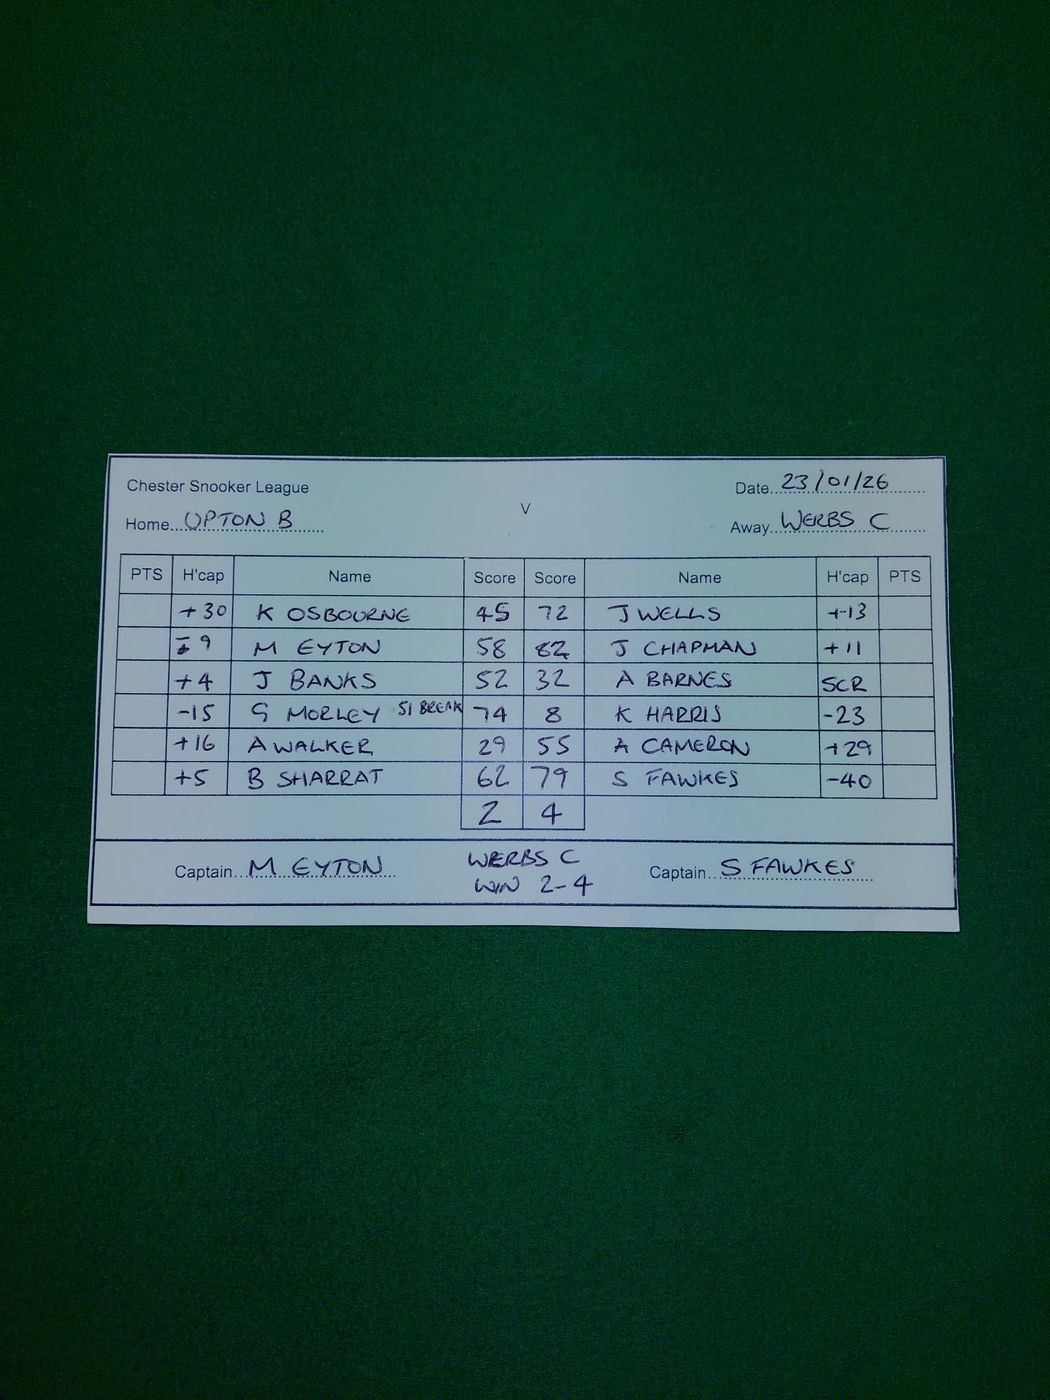 Chester Snooker League
Date 23/01/26
Home UPTON B V Away WERBS C
PTS H'cap Name Score Score Name H'cap PTS
+30 K OSBOURNE 45 72 J WELLS +13
-9 M EYTON 58 82 J CHAPMAN +11
+4 J BANKS 52 32 A BARNES SCR
-15 G MORLEY 51 BREAK 74 8 K HARRIS -23
+16 A WALKER 29 55 A CAMERON +29
+5 B SHARRAT 62 79 S FAWKES -40
2 4
Captain M EYTON WERBS C Captain S FAWKES
WIN 2-4